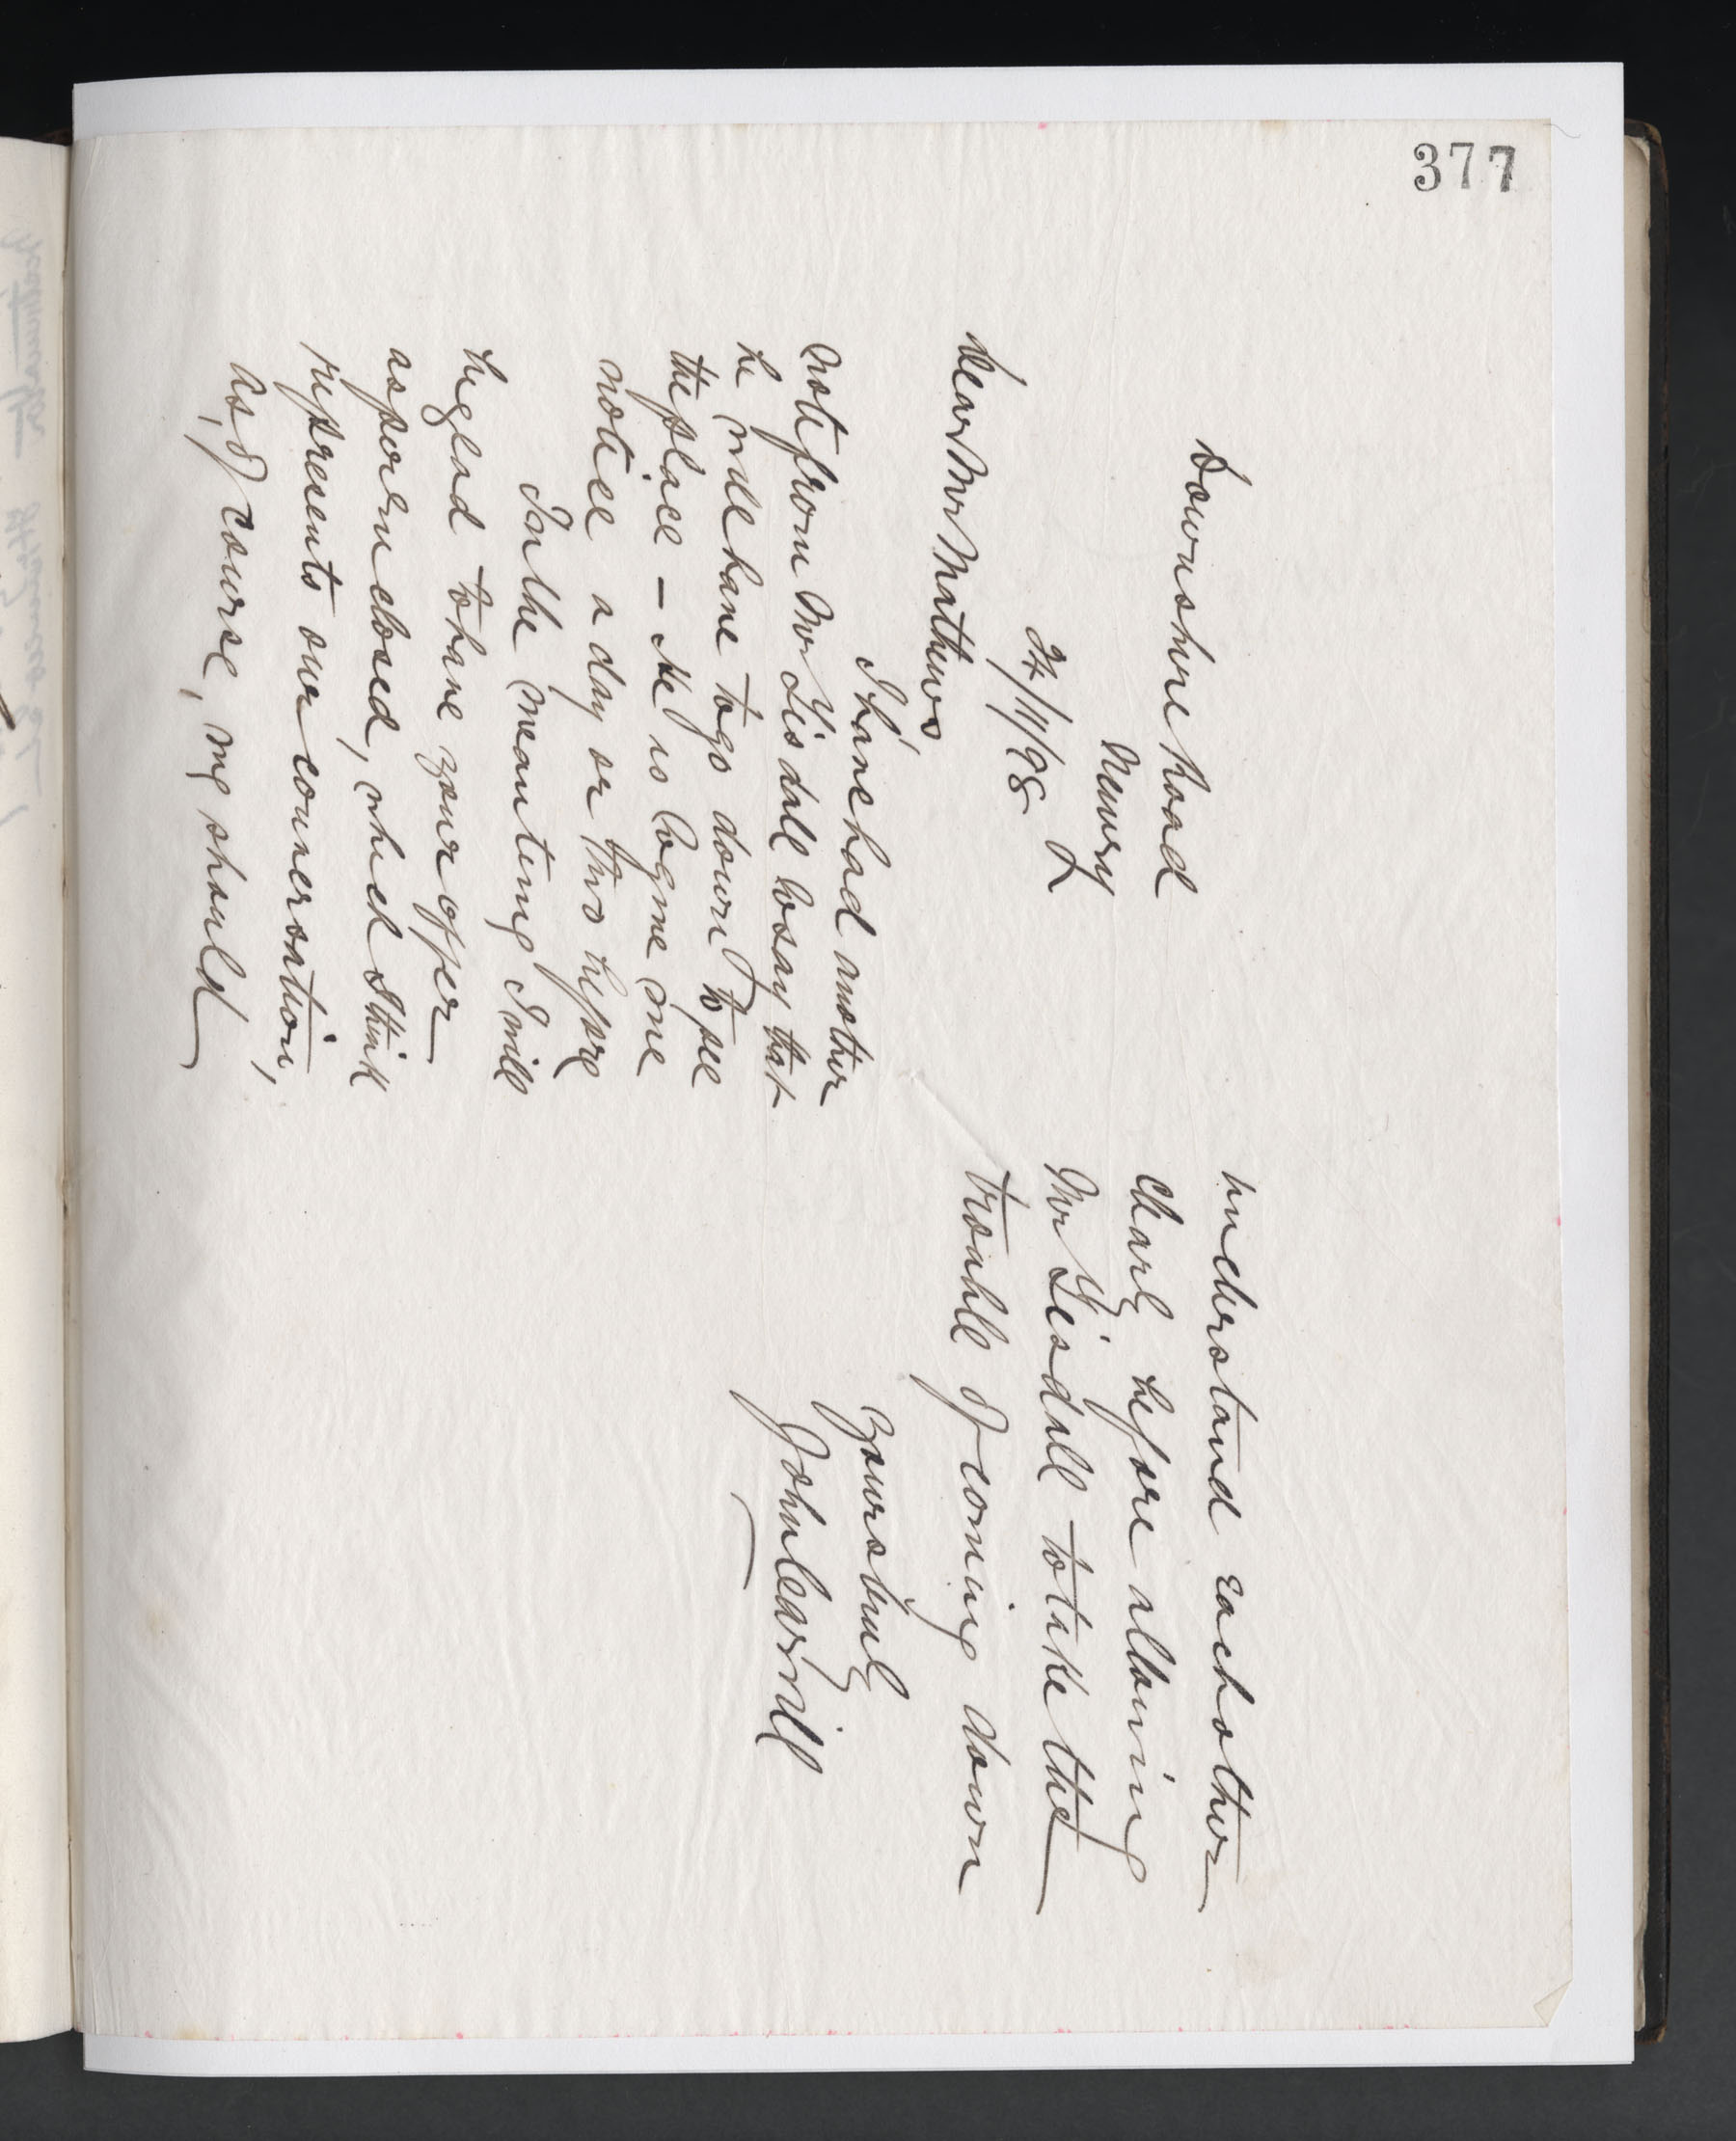 377
Downshire Road
Newry
24/11/98
Dear Mr Mathews
I have had another
note from Mr Tisdall to say that
he will have to go down to see
the place – He is to give me
notice a day or two before
In the meantime I will
be glad to have your offer
as per enclosed, which I think
represents our conversation,
as, of course, we should
understand each other
clearly before allowing
Mr Tisdall to take the
trouble of coming down
Yours truly
John Tearnill